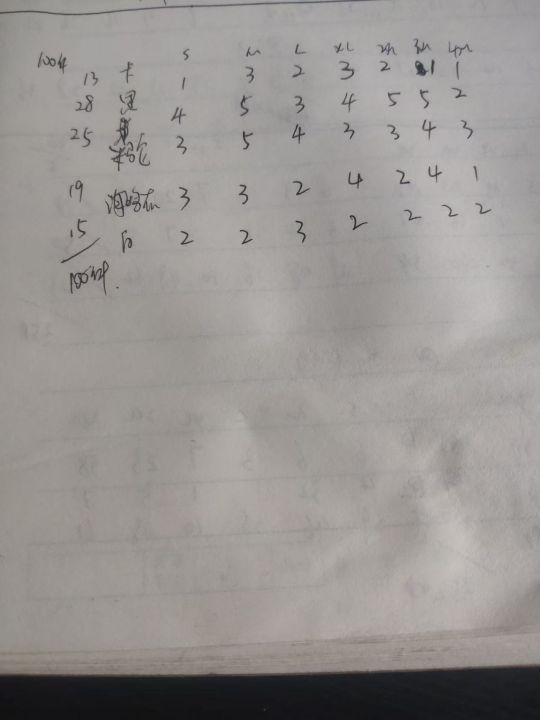 100件 S M L XL 2XL 3XL 4XL
13 卡 1 3 2 3 2 1 1
28 黑 4 5 3 4 5 5 2
25 3 5 4 3 3 4 3
19 3 3 2 4 2 4 1
15 白 2 2 3 2 2 2 2
100